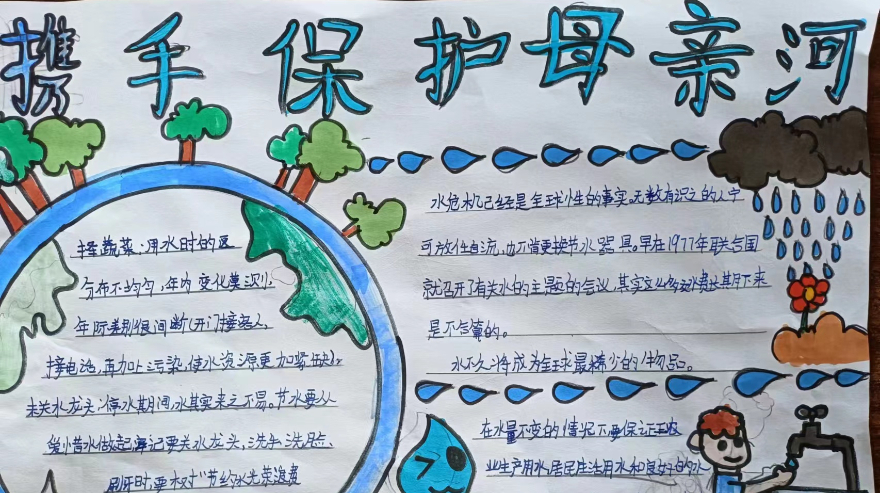 携手保护母亲河
择蔬菜:用水时的区
分布不均匀,年内变化莫测,
年际差别很间断(开门接客人,
接电池,再加上污染,使水资源更加紧缺),
未关水龙头;停水期间,水其实来之不易。节水要从
爱惜水做起,牢记要关水龙头,洗手、洗脸、
刷牙时,要相对"节约水光荣浪费
水危机已经是全球性的事实。无数有识之的人宁
可放任自流,也不肯更换节水器具。早在1977年联合国
就召开了有关水的主题的会议,其实这么多浪费长期下来
是不合算的。
水不久将成为全球最稀少的物品。
在水量不变的情况下,要保证工农
业生产用水,居民生活用水和良好的水